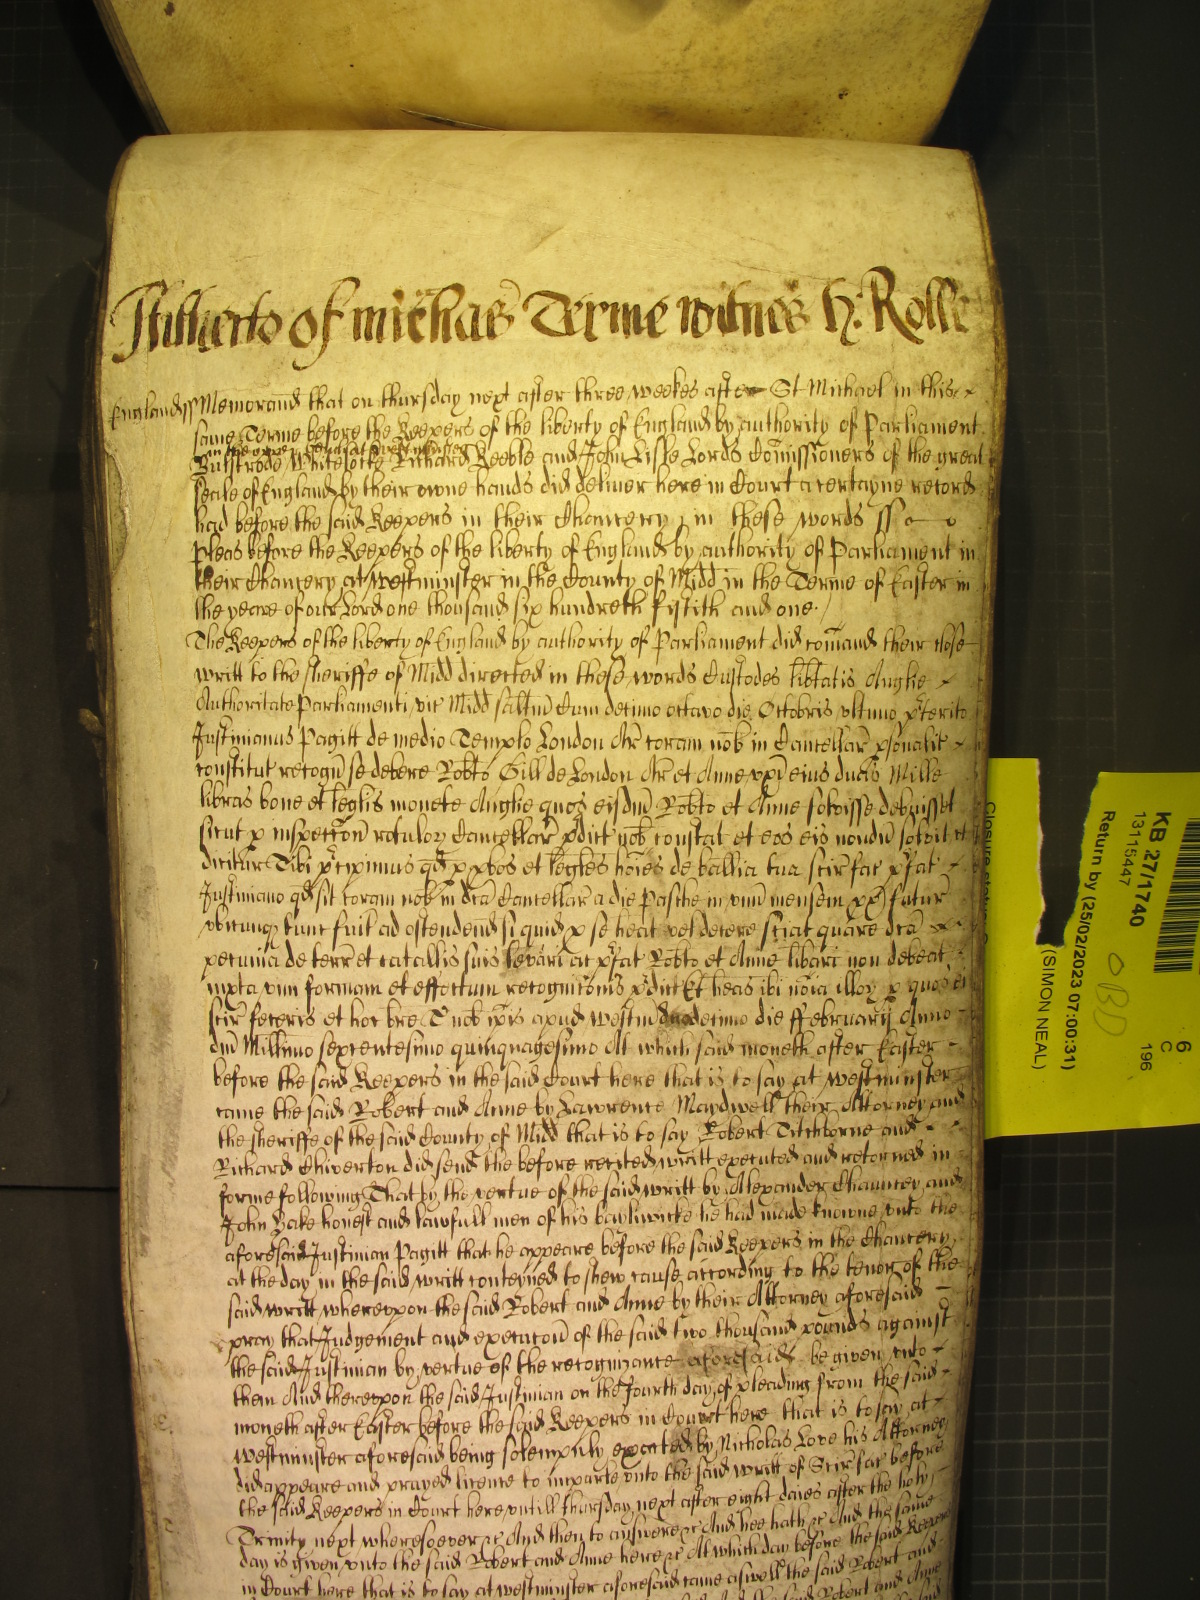 Hitherto of Michas Terme witnes H: Rolle
England ss Memorand that on thursday next after three weekes after St Michael in this
same Terme before the Keepers of the liberty of England by authority of Parliament
in the upper
Bulstrode Whitelocke Richard Keeble and John Lisle Lords Comissioners of the great
seale of England by their owne hands did deliver here in Court a certayne record
had before the said Keepers in their Chancery in these words ss
Pleas before the Keepers of the liberty of England by authority of Parliament in
their Chancery at Westminster in the County of Midd in the Terme of Easter in
the yeare of our Lord one thousand six hundreth fiftith and one.
The Keepers of the liberty of England by authority of Parliament did comand their close
writt to the sheriffe of Midd directed in these words Custodes libtatis Anglie
Authoritate Parliamenti vic Midd saltm Cum decimo octavo die Octobris ultimo pterito
Justinianus Pagitt de medio Templo London Ar coram nob in Cancellar psonalit
constitut recogn se debere Robto Gill de London Ar et Anne uxi eius duas Mille
libras bone et legalis monete Anglie quos eisdm Robto et Anne solvisse debuisset
sicut p inspeccon rotulor Cancellar pdict nob constat et eos eis nondu solvit ut
dicitur Tibi pcipimus qd p pbos et legles hoies de balliva tua scir fac pfat
Justiniano qd sit coram nob in dca Cancellar a die Pasche in unu mensem px futur
ubicunq tunc fuit ad ostendend si quid p se heat vel dicere sciat quare dca
pecunia de terr et catallis suis levari ac pfat Robto et Anne libari non debeat
iuxta vim formam et effectum recognitonis pdict Et heas ibi noia illor p quos ei
scir feceris et hoc bre T nob ipis apud Westm decimo die ffebruarij Anno
dni Millimo sexcentesimo quinquagesimo At which said moneth after Easter
before the said Keepers in the said Court here that is to say at Westminster
came the said Robert and Anne by Lawrence Maydwell their Attorney and
the sheriffe of the said County of Midd that is to say Robert Titchborne and
Richard Chiverton did send the before recited writt executed and retorned in
forme following That by the vertue of the said writt by Alexander Chauncey and
John Bake honest and lawfull men of his bayliwicke he had made knowne unto the
aforesaid Justinian Pagitt that he appeare before the said Keepers in the Chancery
at the day in the said writt conteyned to shew cause according to the tenor of the
said writt whereupon the said Robert and Anne by their Attorney aforesaid
pray that Judgement and execucon of the said two thousand pounds against
the said Justinian by vertue of the recognizance aforesaid be given unto
them And thereupon the said Justinian on the fourth day of pleading from the said
moneth after Easter before the said Keepers in Court here that is to say at
Westminster aforesaid being solempnly exacted by Nicholas Love his Attorney
did appeare and prayed licence to imparle unto the said writt of Scir fac before
the said Keepers in Court here untill thursday next after eight daies after the holy
Trinity next wheresoever &c And then to answere &c And hee hath &c And the same
day is given unto the said Robert and Anne here &c At which day before the said Keepers
in Court here that is to say at Westminster aforesaid came aswell the said Robert and
KB 27/1740
13115447
Return by (25/02/2023 07:00:31)
(SIMON NEAL)
6
C
196
Closure status: